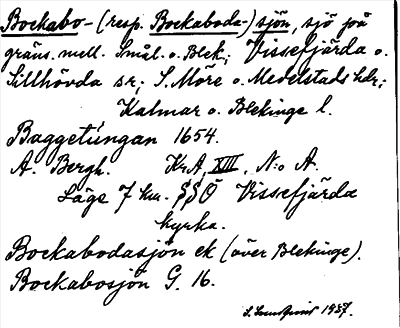 Bockabo- (resp. Bockaboda-) sjön, sjö på
gräns. mell. Smål. o. Blek.; Vissefjärda o.
Sillhövda sr; S. Möre o. Medelstads hdr;
Kalmar o. Blekinge l.
Baggetungan 1654.
A. Bergh. KrA, XIII, N:o A.
Läge 7 km. SSÖ Vissefjärda
kyrka.
Bockabodasjön ek (över Blekinge).
Bockabosjön G. 16.
1937.